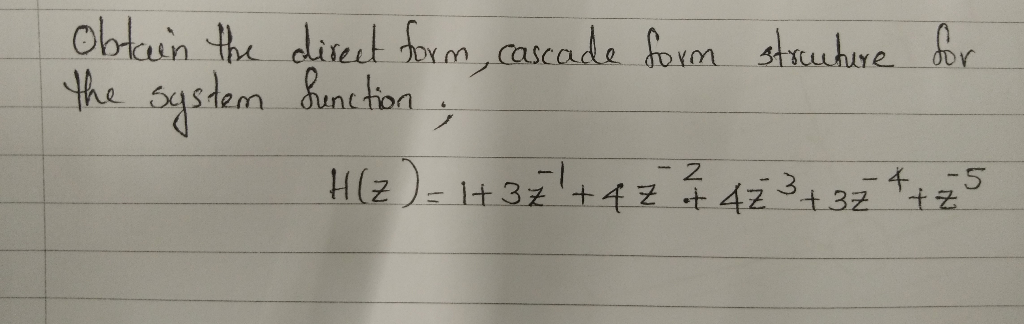 Obtain the direct form, cascade form structure for
the system function;
H(z) = 1 + 3z⁻¹ + 4z⁻² + 4z⁻³ + 3z⁻⁴ + z⁻⁵